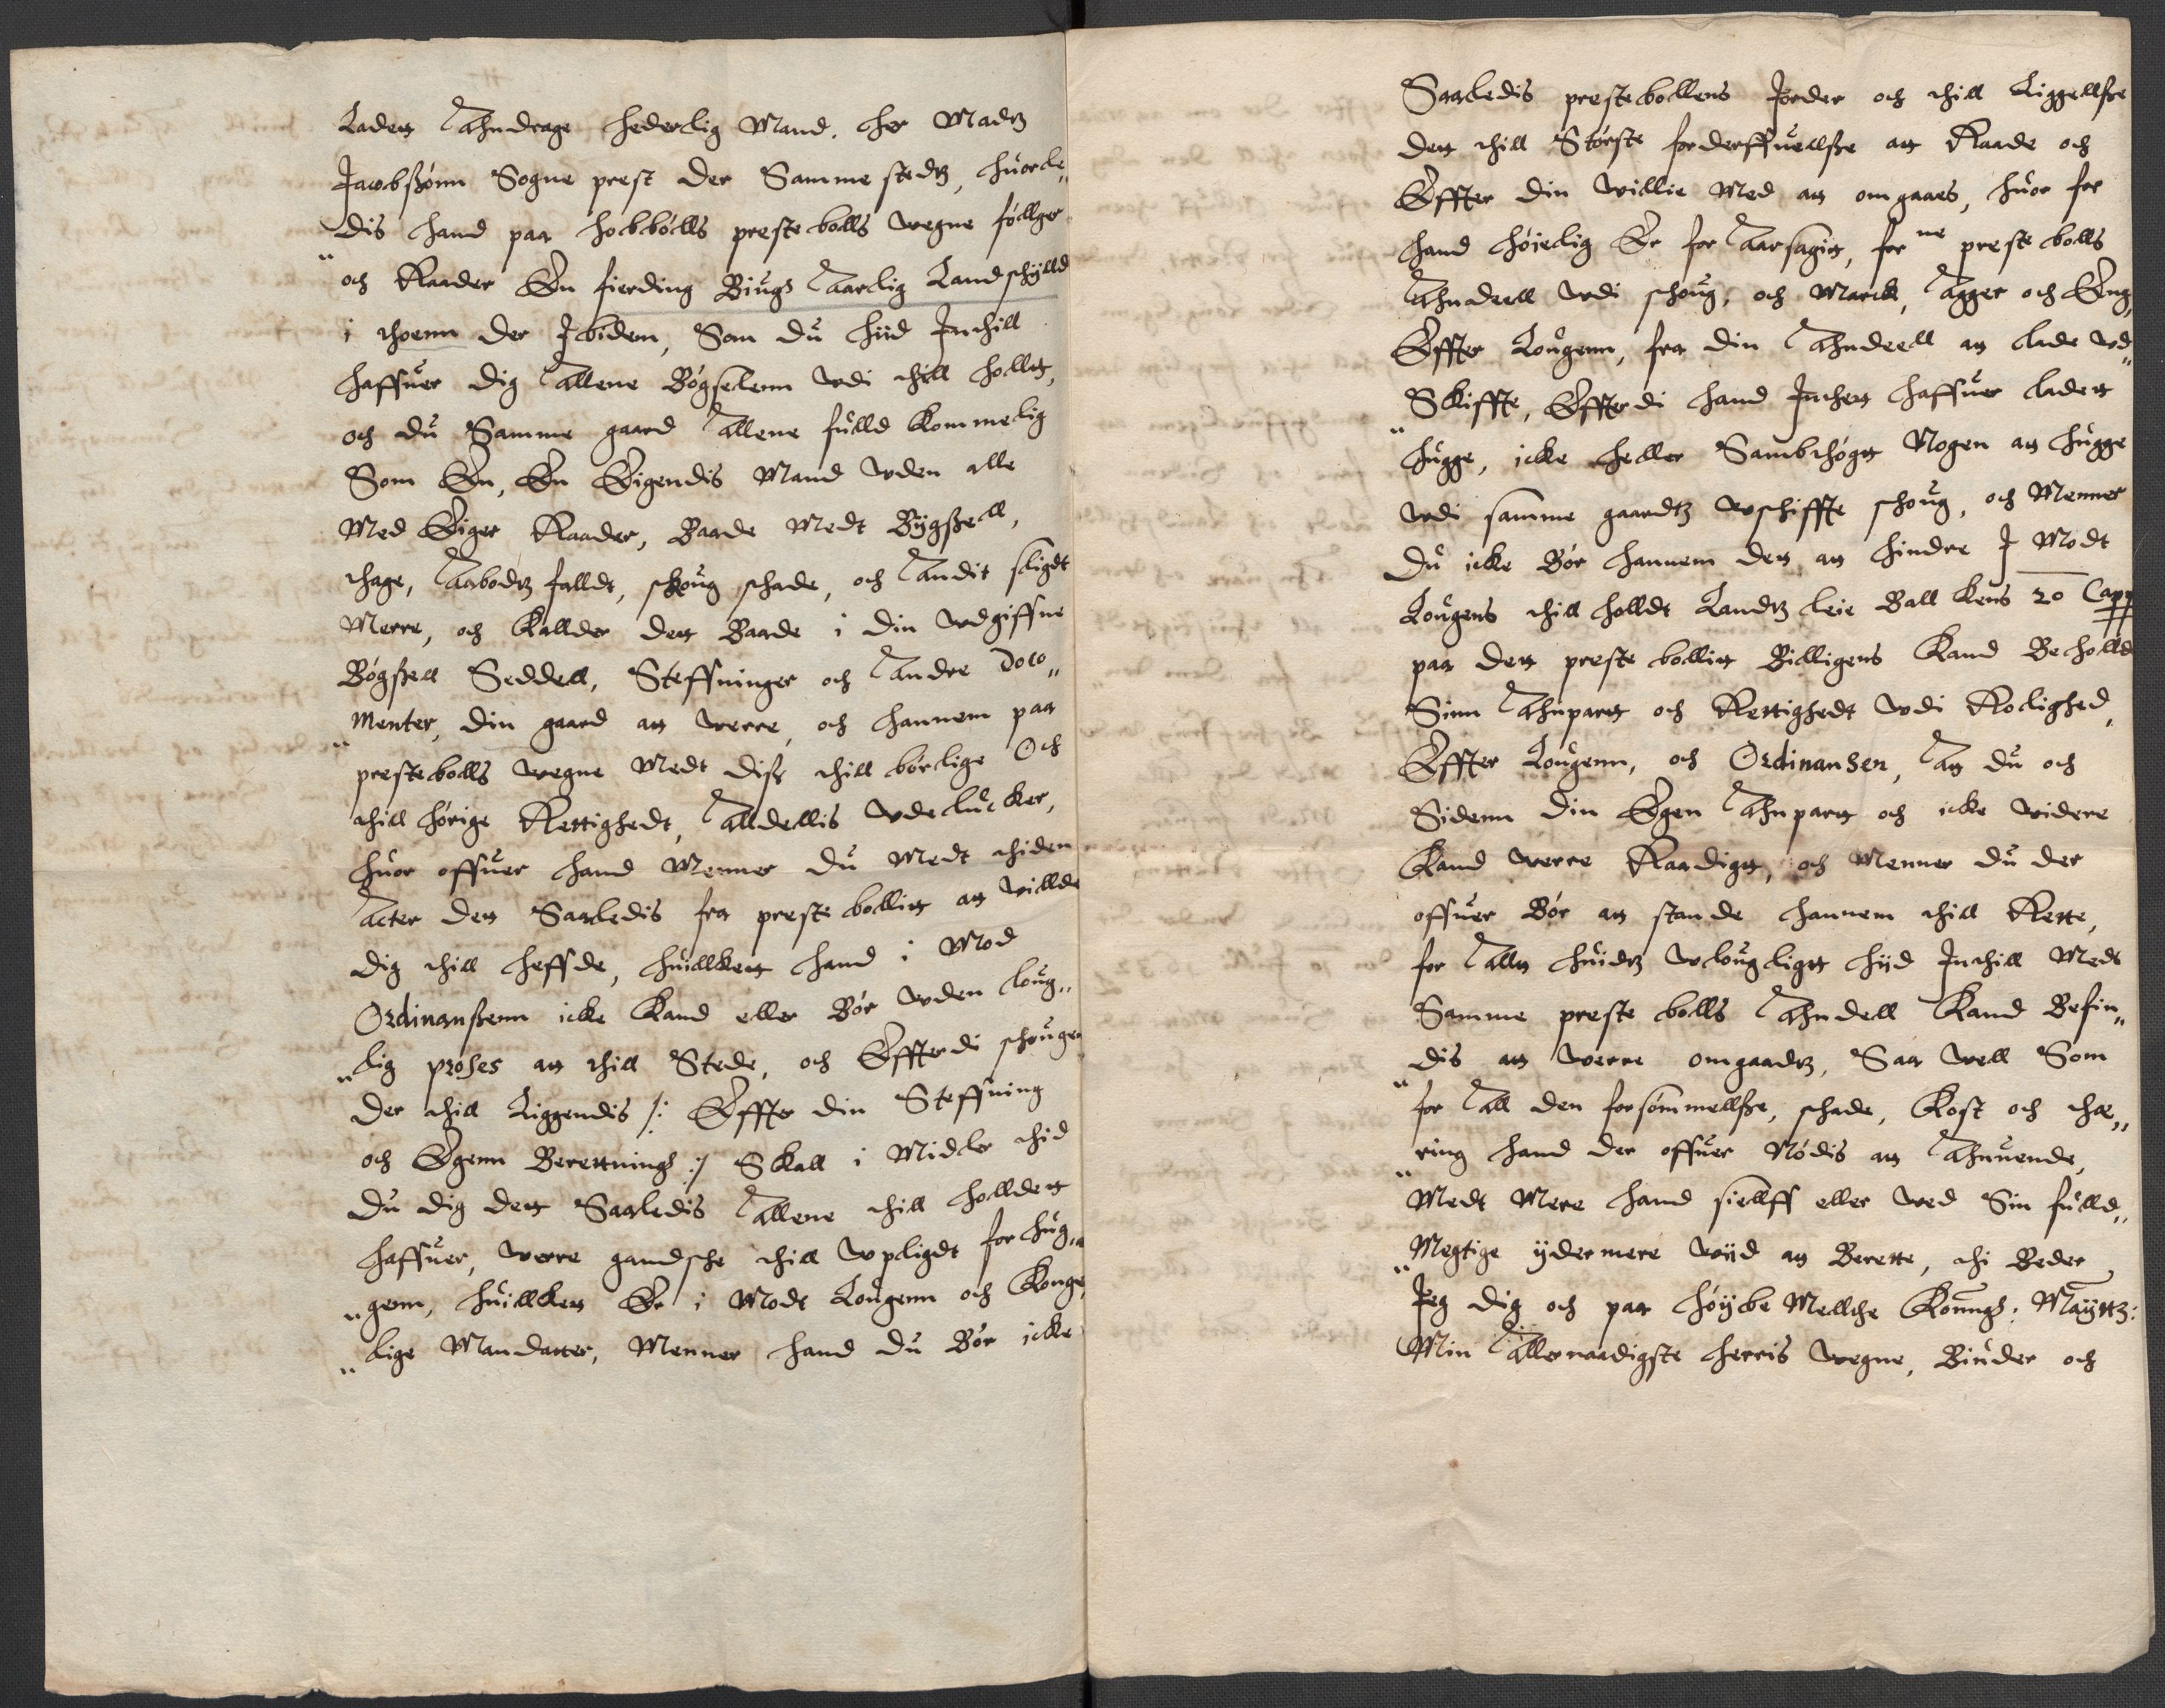 Ladet Ahndrage hederlig Mand, her Madtz
Jacobßønn Sogne prest der Samme stedtz, huorle„
dis hand paa hobbølls prestebolls wegne føllger
och Raader En fierding Biugs Aarlig Landschylld
i thoenn der Ibidem, Som du hiid Inthill
haffuer dig Allene Bøgselenn wdi thill hollet,
och du Samme gaard Allene fulld kommelig
Som En, En Eigendis Mand wden alle
Med Eiger Raader, Baade Medt Bygßell,
thage, Aabodtz falldt, skoug schade, och Andit sligdt
Merre, och Kallder det Baade i din wdgiffne
Bøgßell Seddell, Steffninger och Andre Doco„
„menter, din gaard at werre, och hannem paa
prestebolls wegne Medt dis thill børlige Och
thill hørige Rettighedt, Alldellis wdelucker,
huor offuer hand Menner du Medt thiden
Acter det Saaledis fra prestebollit at willde
dig thill heffde, huillket hand i Mod
Ordinanßenn icke Kand eller Bør wden loug„
„lig proses at thill Stede, och Effterdi schougen
der thill Liggendis /: Effter din Steffning
och Egenn Berettnings :/ Skall i Midler thid
du dig det Saaledis Allene thill holldet
haffuer, werre gandsche thill wpligdt forhug„
„genn, huillket Er i Modt Lougenn och Konge„
„lige Mandatter, Menner hand du Bør icke
Saaledis prestebollens Jorder och thill Liggellße
det thill Største forderffuellße at Raade och
Effter din willie Med at omgaaes, huor for
hand høielig Er for Aarsagit, forne preste bolls
Ahndeell wdi schoug, och Marck, Agger och Eng,
Effter Lougenn, fra din Ahndeell at lade wd„
„Skiffte, Effterdi hand Inthet haffuer ladet
hugge, icke heller Sambthøgt Nogen at hugge
wdi samme gaardtz wschiffte schoug, och Menner
du icke Bør hannem det at hindre I Modt
Lougens thill holldt Landtz leie Ball kens 20 Capp
paa det preste bollit Billigens Kand Beholld
Sinn Ahnpart och Rettighedt wdi Rolighed,
Effter Lougenn, och Ordinansen, At du och
Sidenn din Egen Ahnpart och icke widere
Kand werre Raadigt, och Menner du der
offuer Bør at stande hannem thill Rette,
for Allt huidtz wlougligt hiid Inthill Medt
Samme preste bolls Ahndell Kand Befin„
„dis at werre omgaadtz, Saa well Som
for All den forsømmellße, schade, Kost och thæ„
„ring hand der offuer Nødis at Ahnuende,
Medt Mere hand siellff eller wed Sin fulld„
„Megtige ydermere wiid at Berette, thi Beder
Jeg dig och paa høybe Mellthe Konngs: Mayttz:
Min Allernaadigste herris wegne, Biuder och